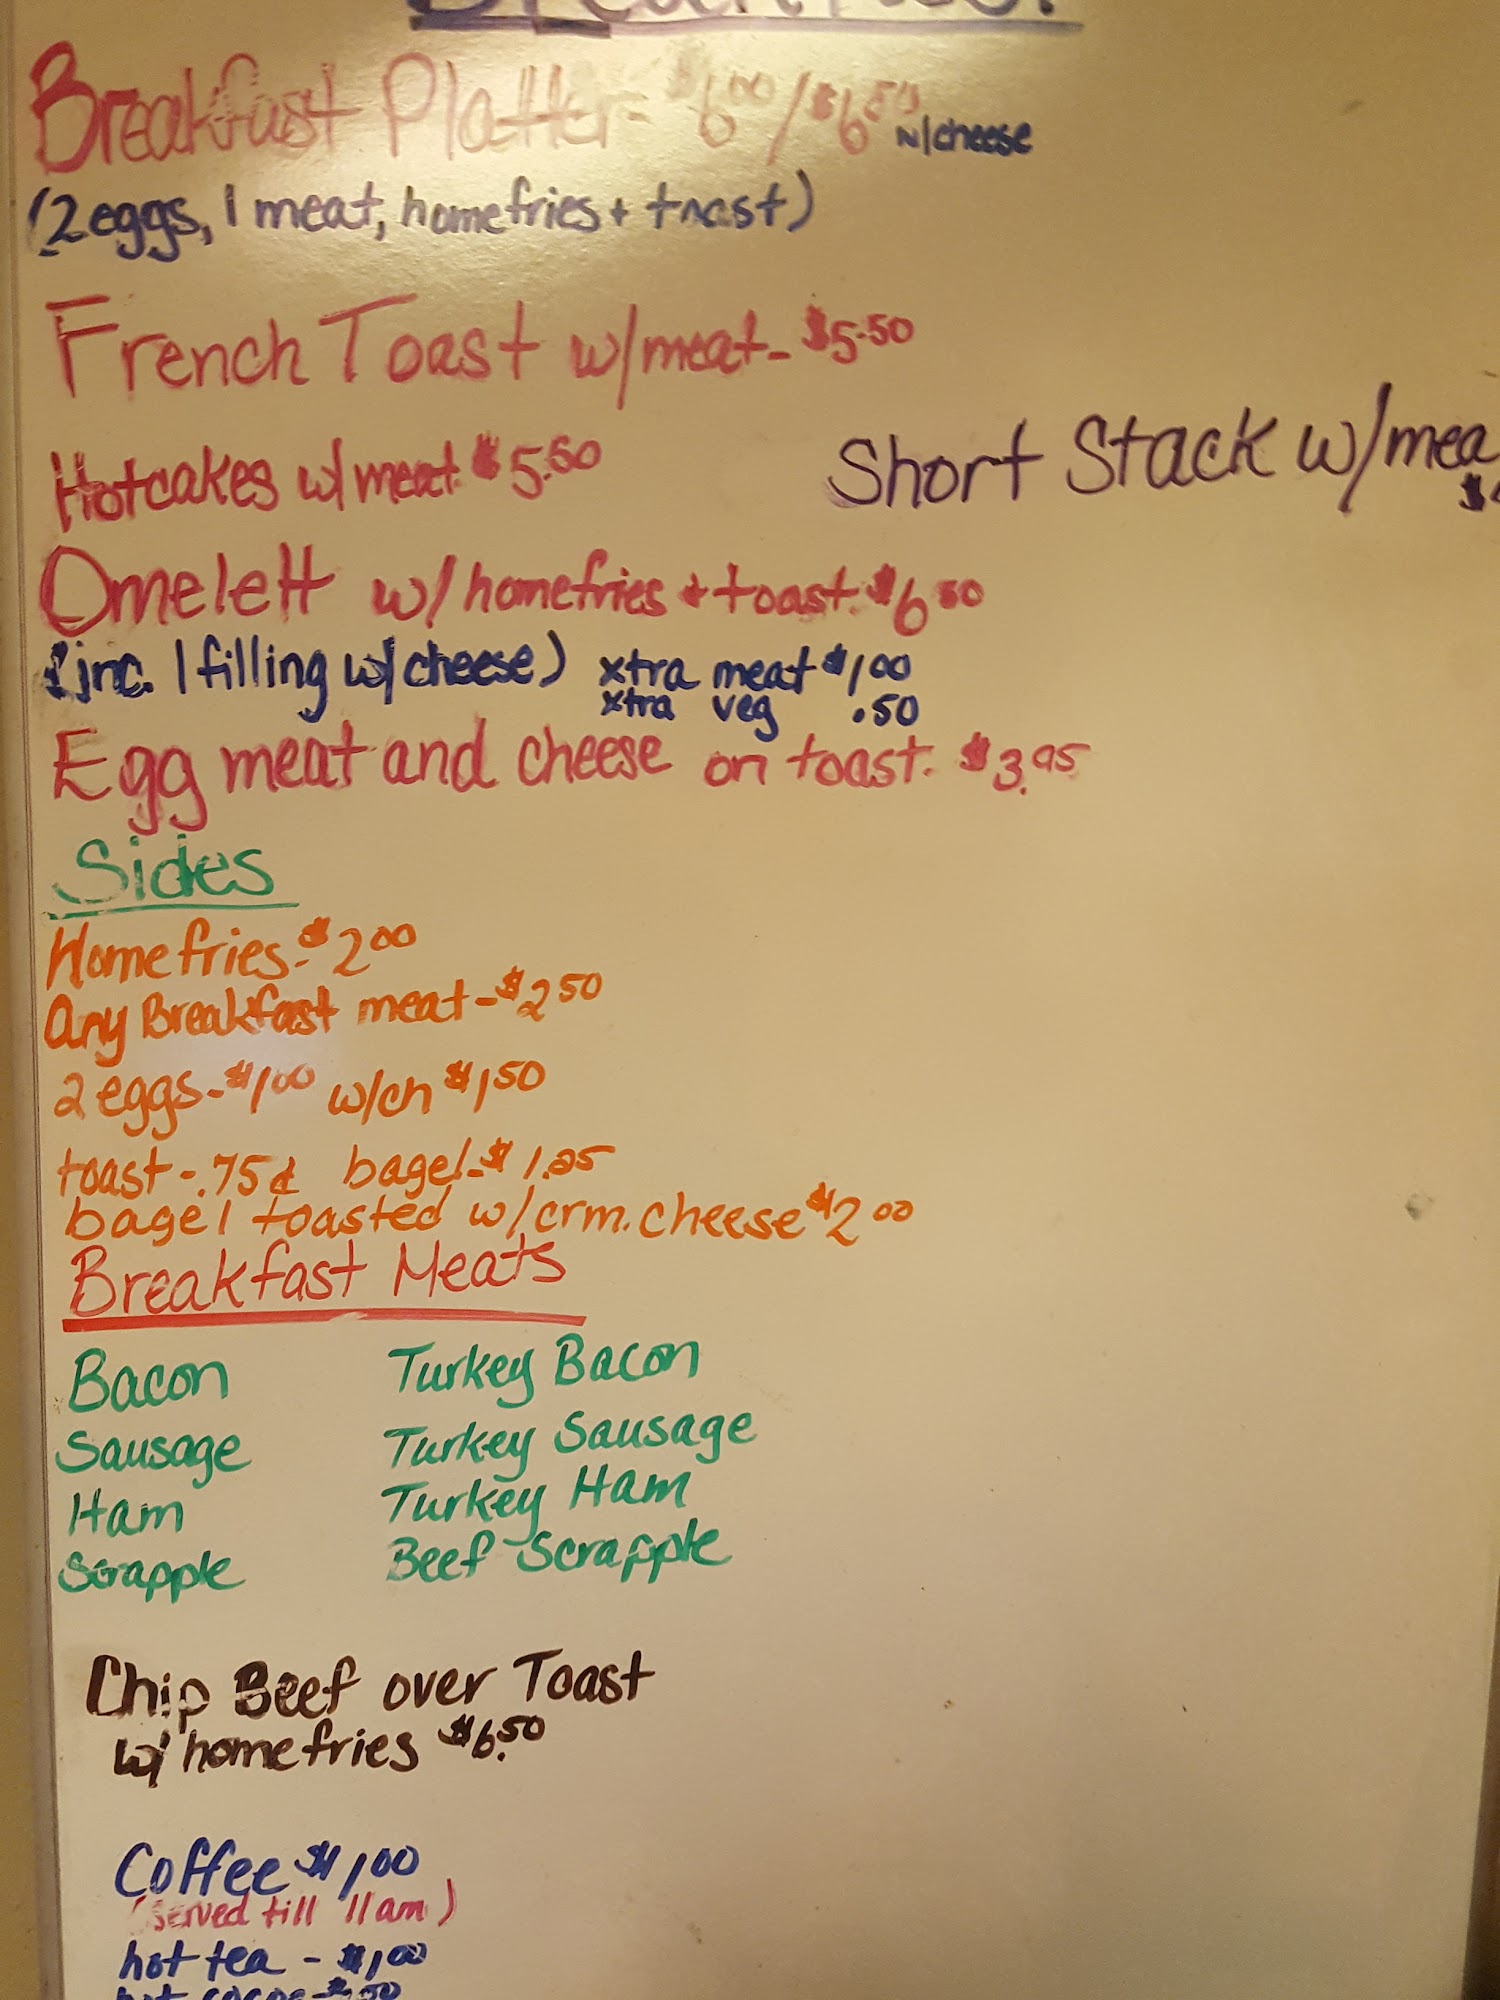 Breakfast Platter- $6.00/$6.50 w/cheese
(2 eggs, 1 meat, homefries + toast)
French Toast w/meat- $5.50
Hotcakes w/meat $5.50
Short Stack w/mea
Omelett w/homefries + toast. $6.50
(inc. 1 filling w/cheese) xtra meat $1.00
xtra veg .50
Egg meat and cheese on toast. $3.95
Sides
Homefries-$2.00
Any Breakfast meat-$2.50
2 eggs-$1.00 w/ch $1.50
toast-.75¢ bagel-$1.25
bagel toasted w/crm.cheese $2.00
Breakfast Meats
Bacon Turkey Bacon
Sausage Turkey Sausage
Ham Turkey Ham
Scrapple Beef Scrapple
Chip Beef over Toast
w/ homefries $6.50
Coffee $1.00
(served till 11am)
hot tea - $1.00